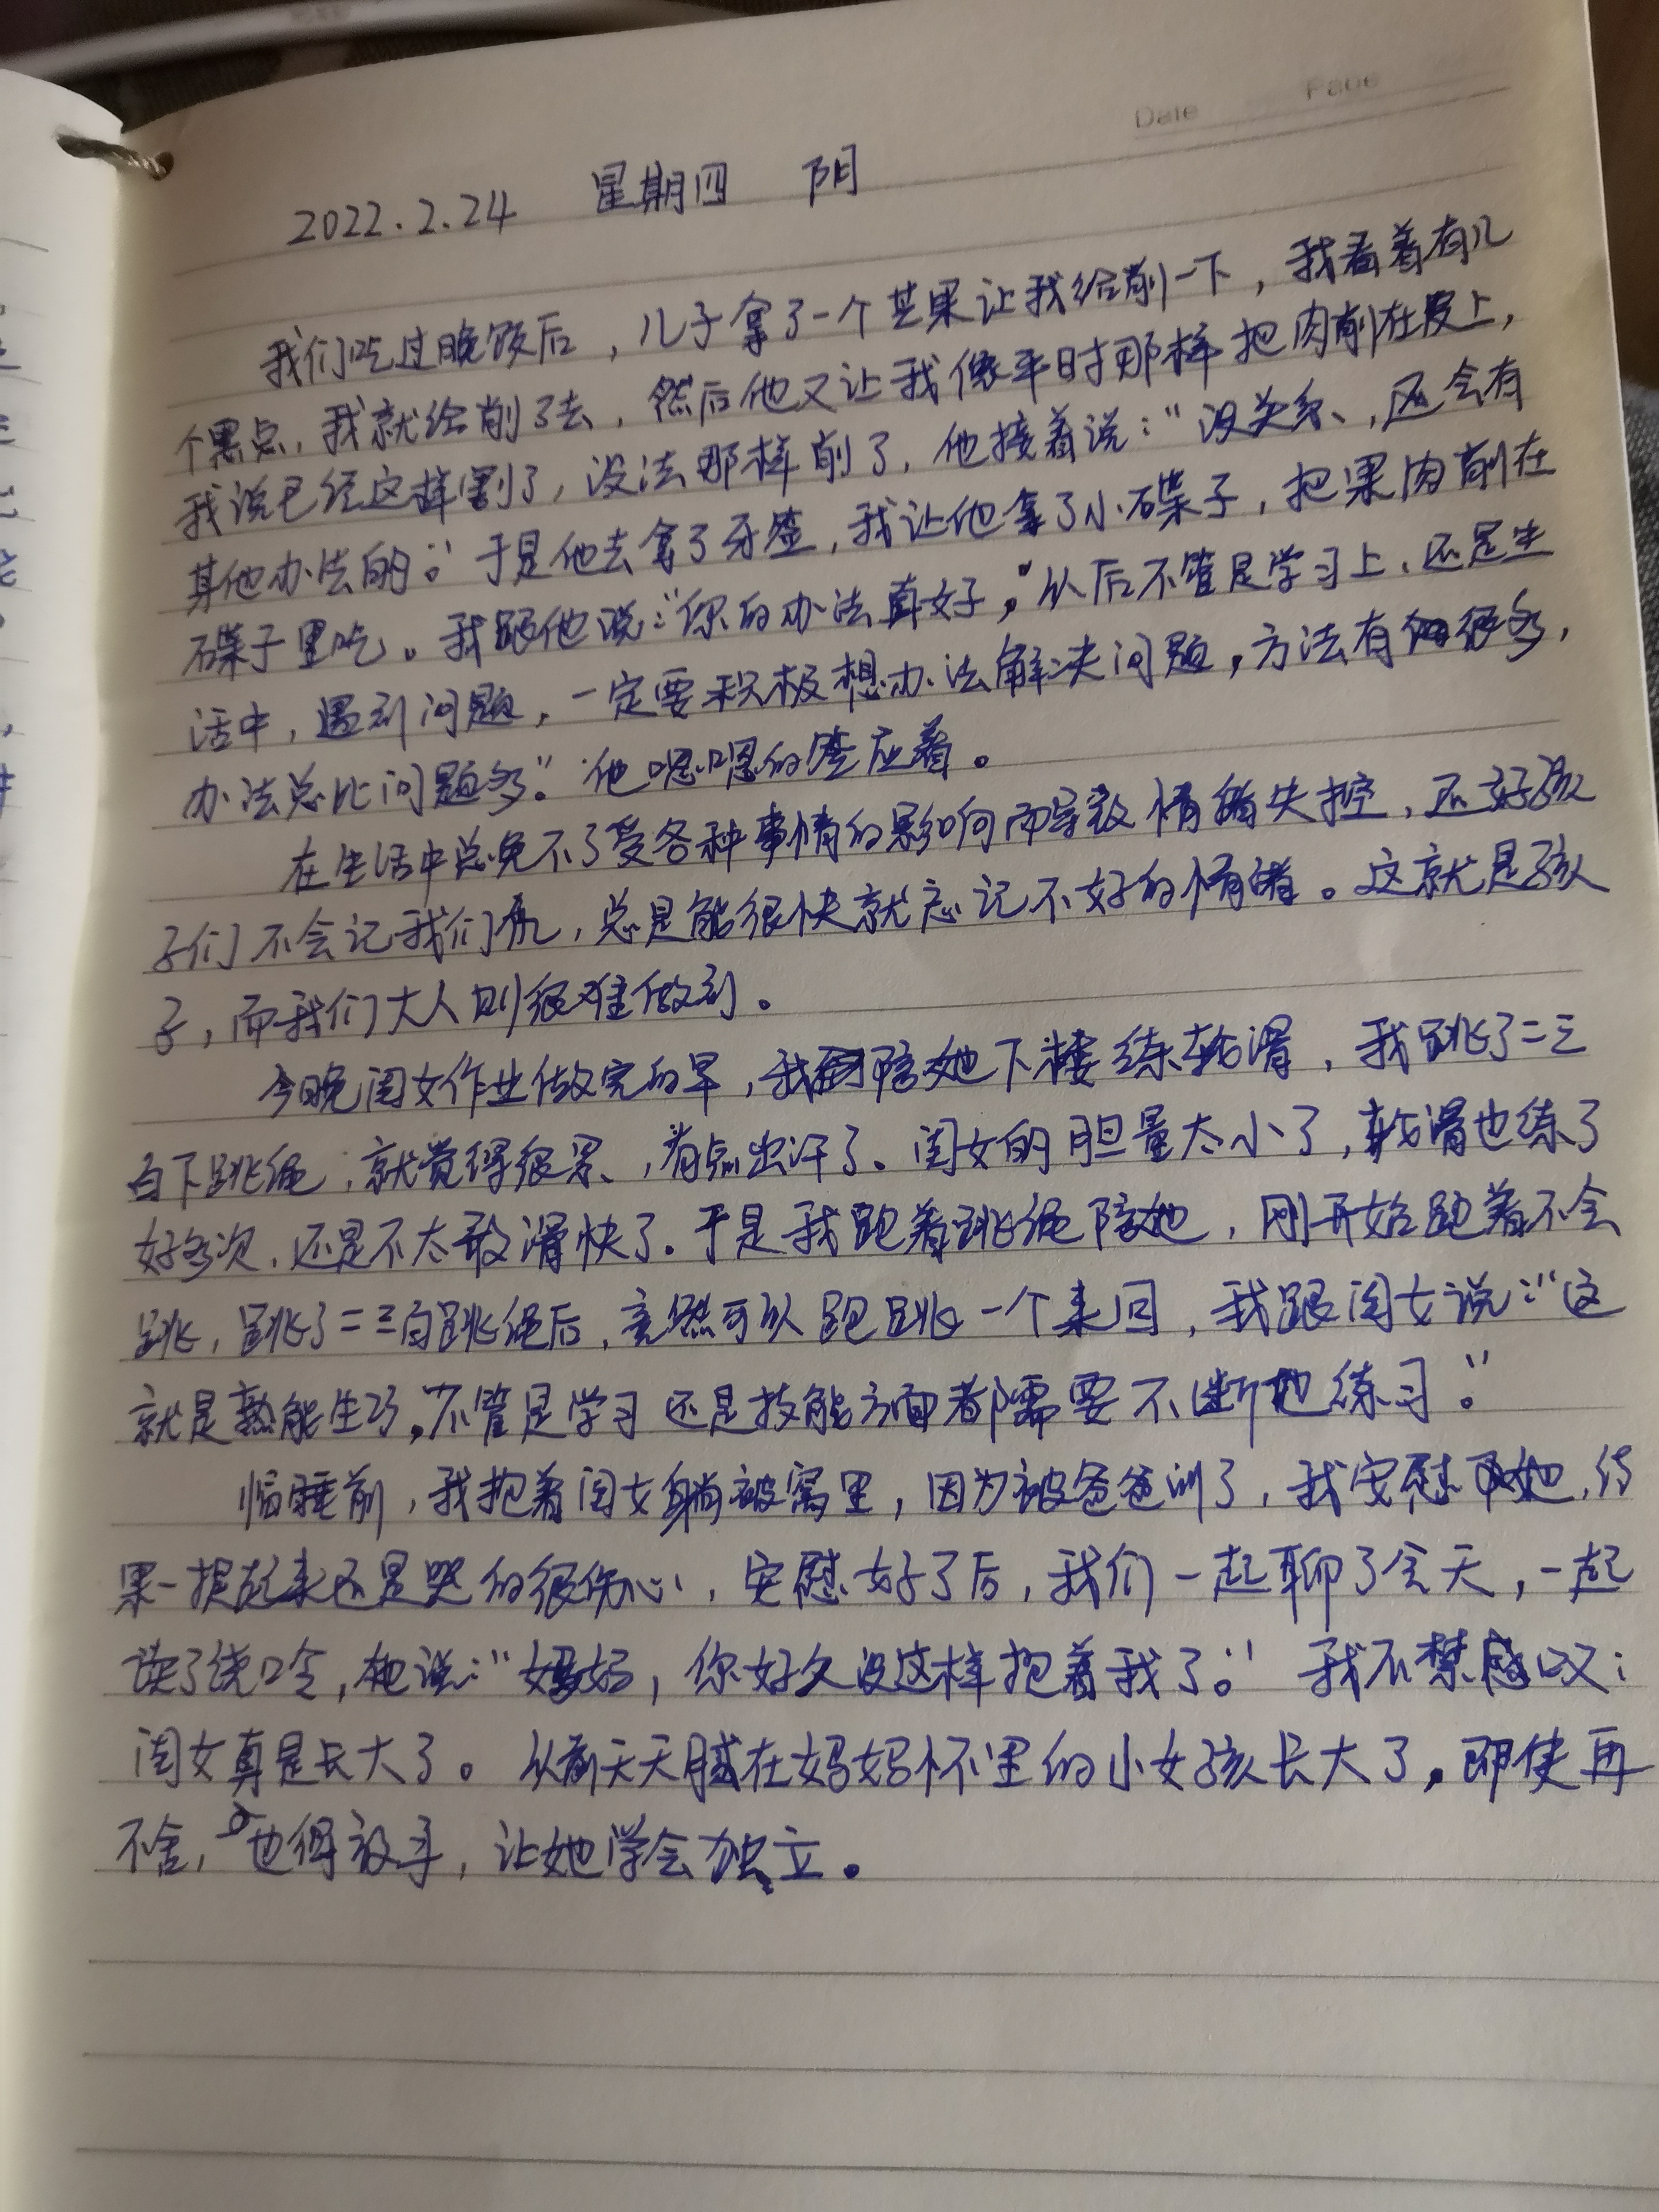 Date Page
2022.2.24 星期四 阴
我们吃过晚饭后，儿子拿了一个苹果让我给削一下，我看着有几
个黑点，我就给削了去，然后他又让我像平时那样把肉削在皮上，
我说已经这样割了，没法那样削了，他接着说：“没关系，还会有
其他办法的。”于是他去拿了牙签，我让他拿了小碟子，把果肉削在
碟子里吃。我跟他说：“你的办法真好，”从后不管是学习上，还是生
活中，遇到问题，一定要积极想办法解决问题，方法有很多，
办法总比问题多。”他嗯嗯的答应着。
在生活中总免不了受各种事情的影响而导致情绪失控，还好孩
子们不会记我们仇，总是能很快就忘记不好的情绪。这就是孩
子，而我们大人则很难做到。
今晚闺女作业做完的早，我陪她下楼练轮滑，我跳了二三
百下跳绳，就觉得很累，有点出汗了。闺女的胆量太小了，轮滑也练了
好多次，还是不太敢滑快了。于是我跑着跳绳陪她，刚开始跑着不会
跳，跳了二三百跳绳后，竟然可以跑跳一个来回，我跟闺女说：“这
就是熟能生巧，不管是学习还是技能方面都需要不断地练习。”
临睡前，我抱着闺女躺被窝里，因为被爸爸训了，我安慰她，结
果一提起来还是哭的很伤心，安慰好了后，我们一起聊了会天，一起
读了绕口令，她说：“妈妈，你好久没这样抱着我了。”我不禁感叹：
闺女真是长大了。从前天天腻在妈妈怀里的小女孩长大了，即使再
不舍，也得放手，让她学会独立。